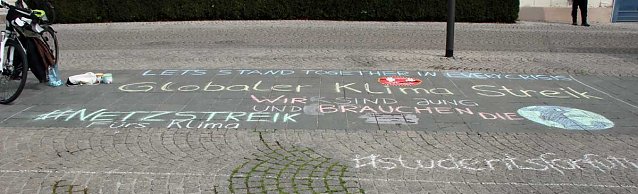 LETS STAND TOGETHER IN EVERY CRISIS
Globaler Klima Streik
WIR SIND JUNG
UND BRAUCHEN DIE
#NETZSTREIK
Fürs Klima
#studentsforfutu